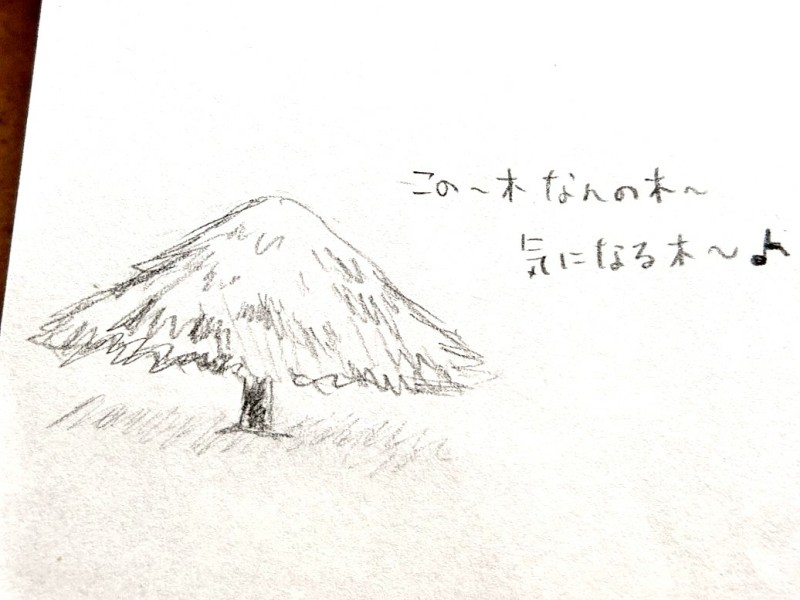 この〜木なんの木〜
気になる木〜♪